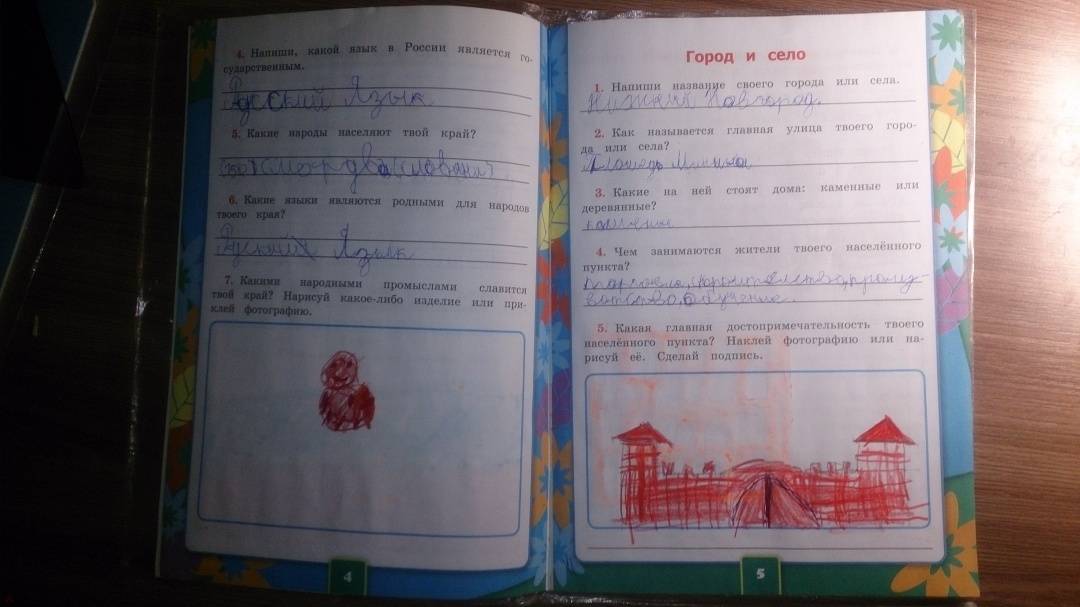 4. Напиши, какой язык в России является го-
сударственным.
Русский Язык
5. Какие народы населяют твой край?
мордва (славяни)
6. Какие языки являются родными для народов
твоего края?
Русский Язык
7. Какими народными промыслами славится
твой край? Нарисуй какое-либо изделие или при-
клей фотографию.
4
Город и село
1. Напиши название своего города или села.
Нижний Новгород.
2. Как называется главная улица твоего горо-
да или села?
Площедь Минина
3. Какие на ней стоят дома: каменные или
деревянные?
каменые
4. Чем занимаются жители твоего населённого
пункта?
обучение.
5. Какая главная достопримечательность твоего
населённого пункта? Наклей фотографию или на-
рисуй её. Сделай подпись.
5